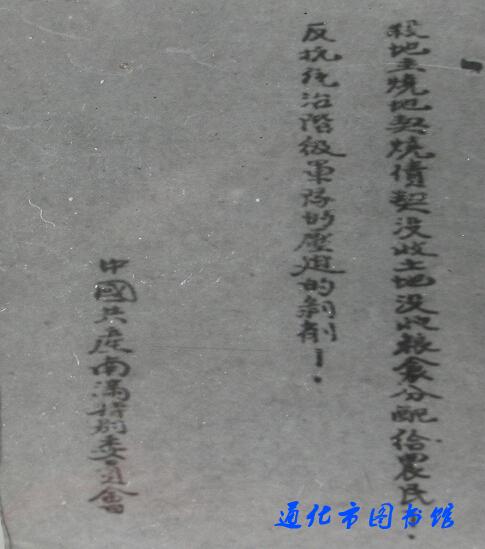 殺地主燒地契燒債契没收土地没收粮食分配给農民!
反抗统治階級軍隊的壓迫的剝削!
中國共産南满特别委員會
通化市图书馆